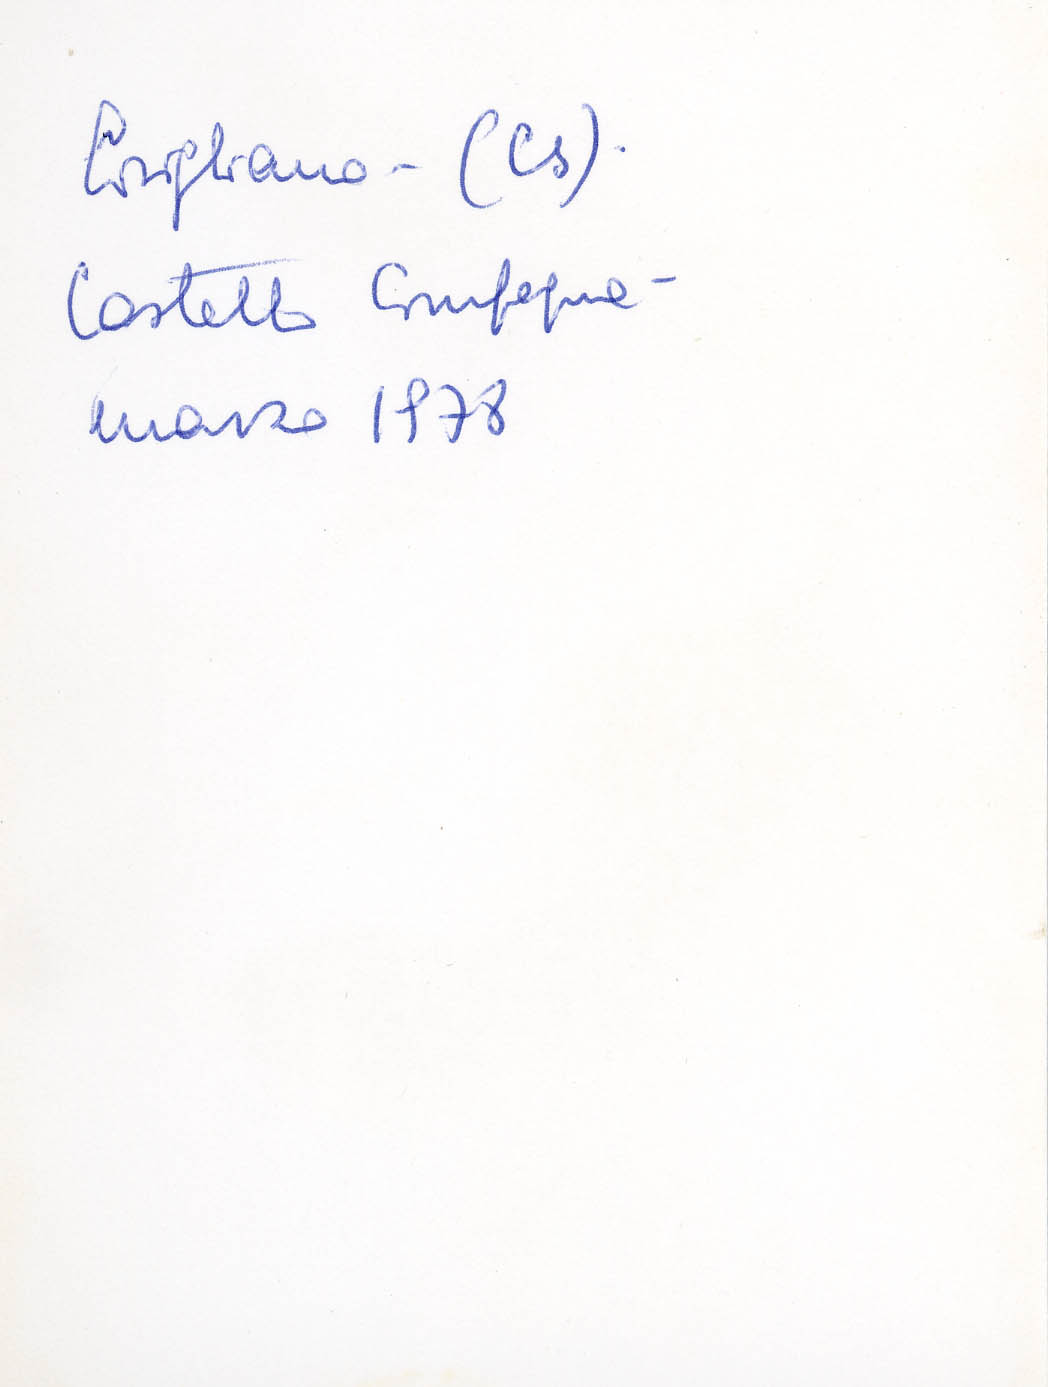 Corigliano - (CS).
Castello Compagna -
marzo 1978